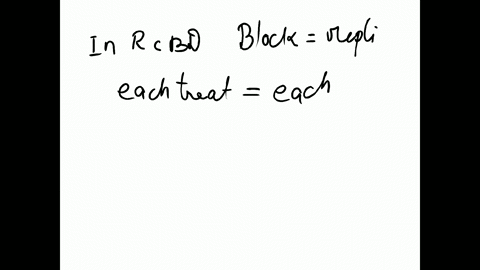 In RcBD Block = repli
each treat = each